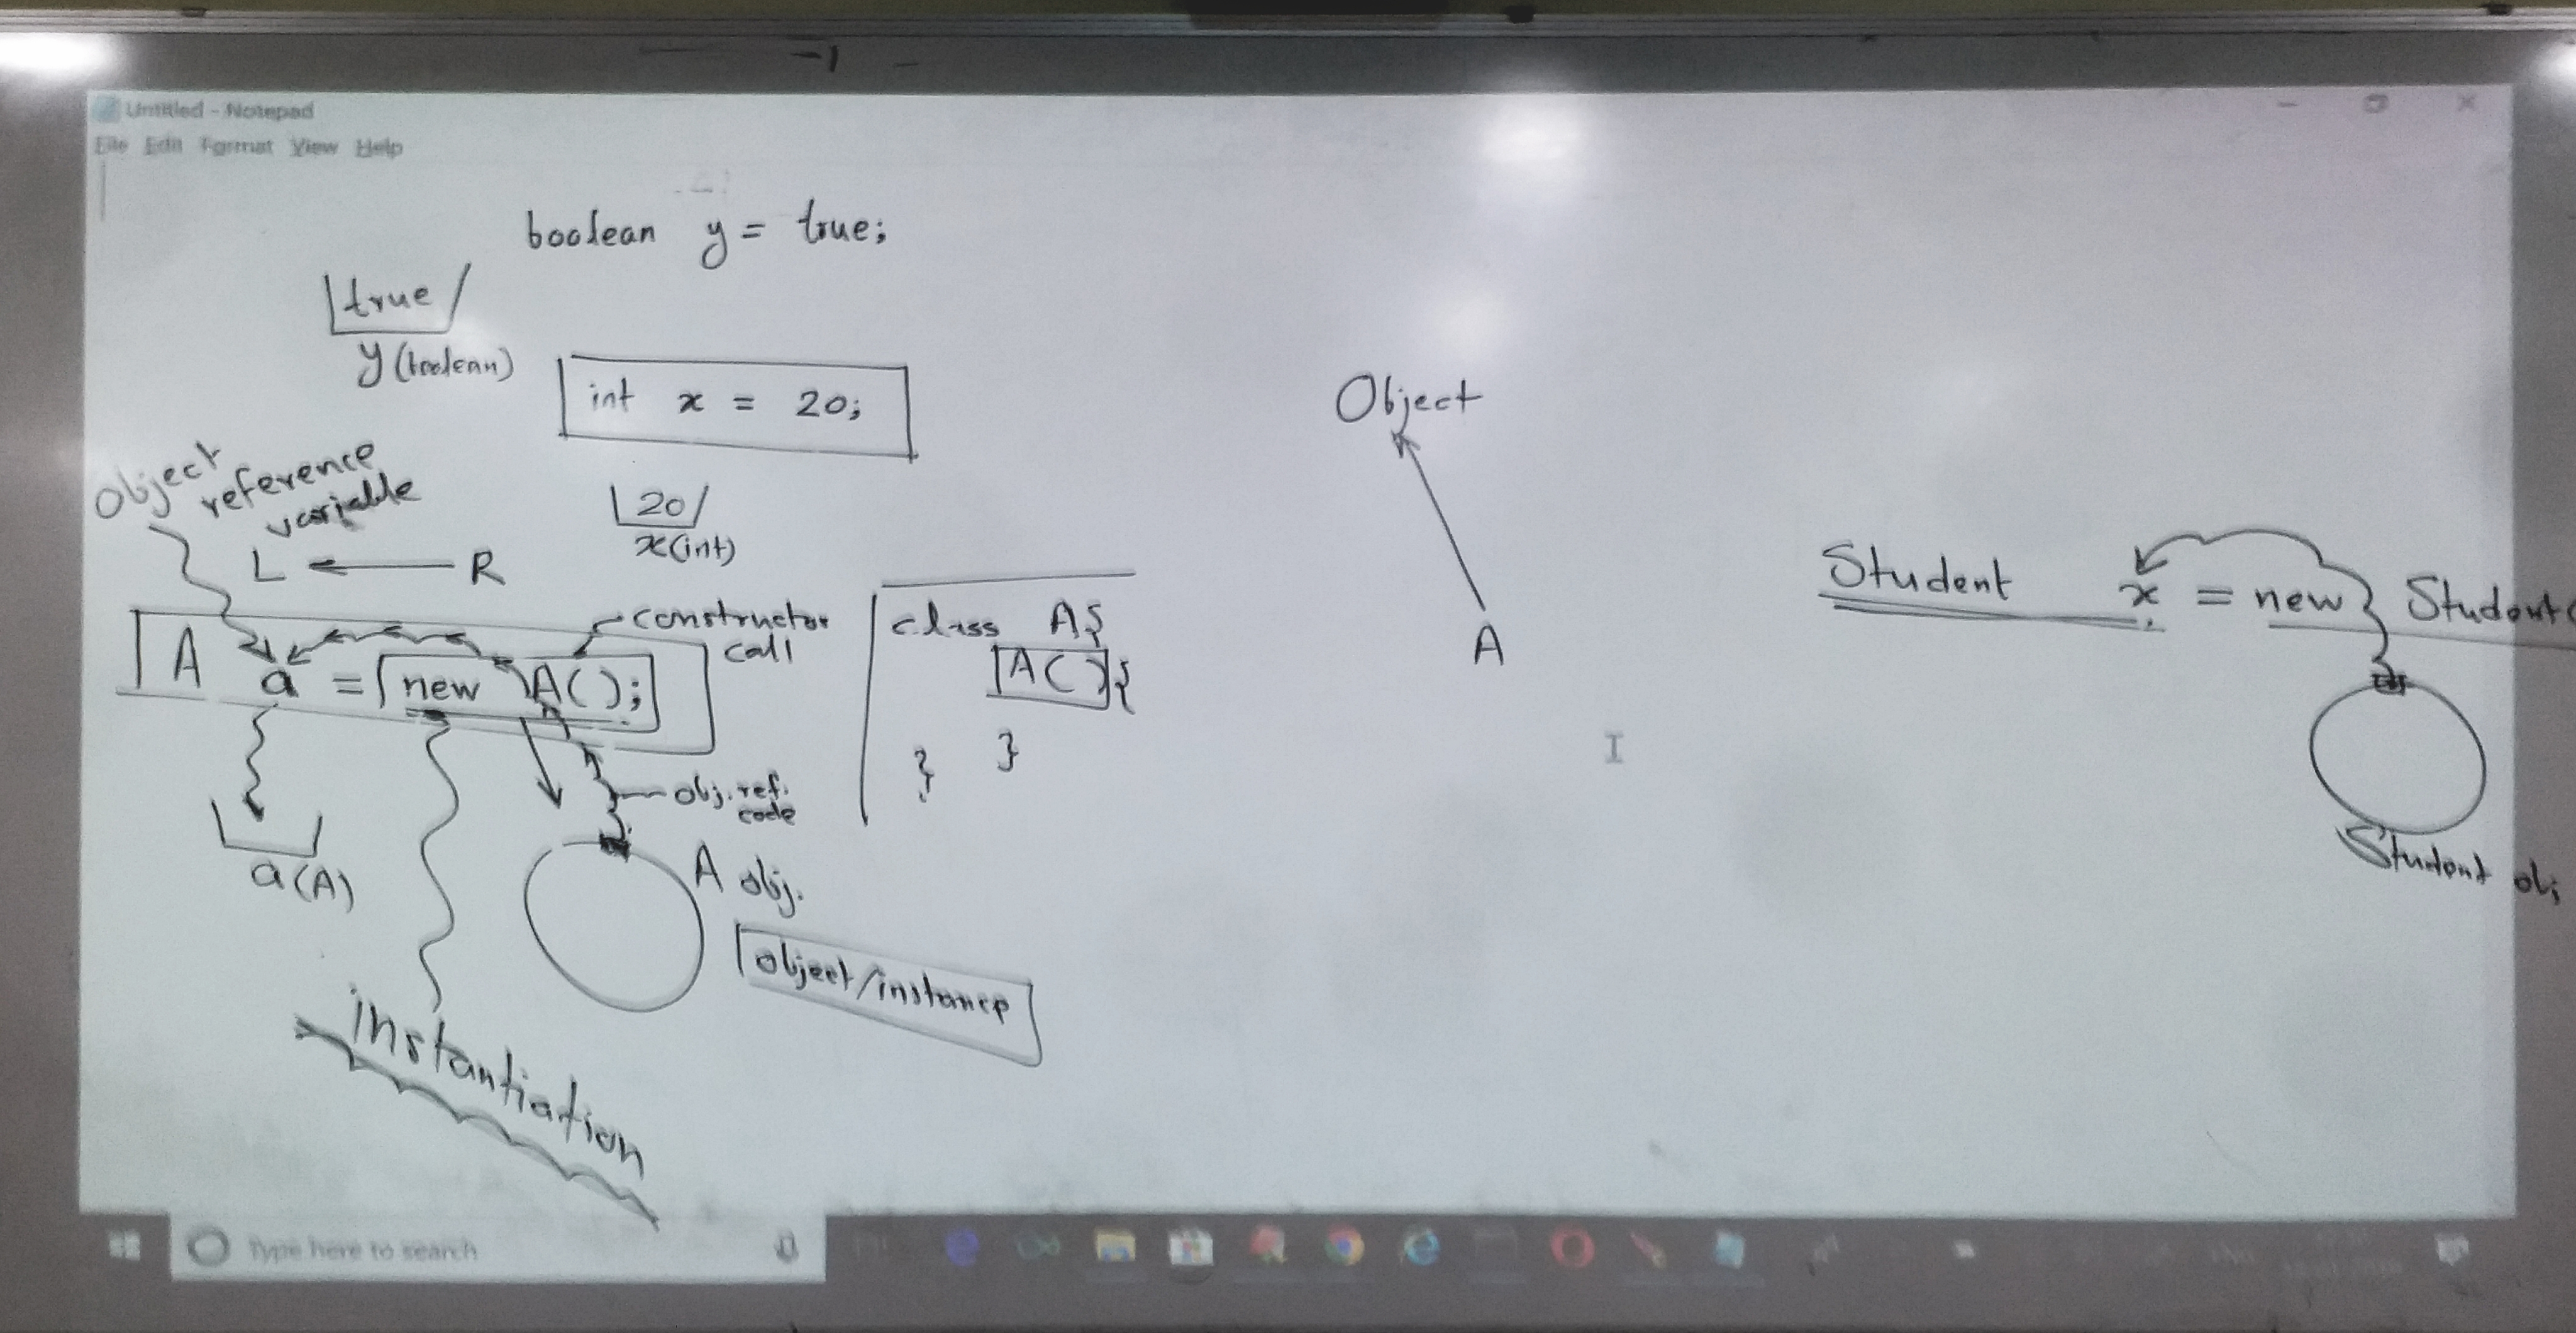 -1
Untitled - Notepad
File Edit Format View Help
boolean y = true;
true
y (boolean)
int x = 20;
20
x(int)
Object
reference
variable
L ← R
A a = new A();
constructor
call
a(A)
obj. ref.
code
A obj.
object/instance
instantiation
class A{
A(){
}
}
Object
A
Student x = new Student(
Student obj
Type here to search